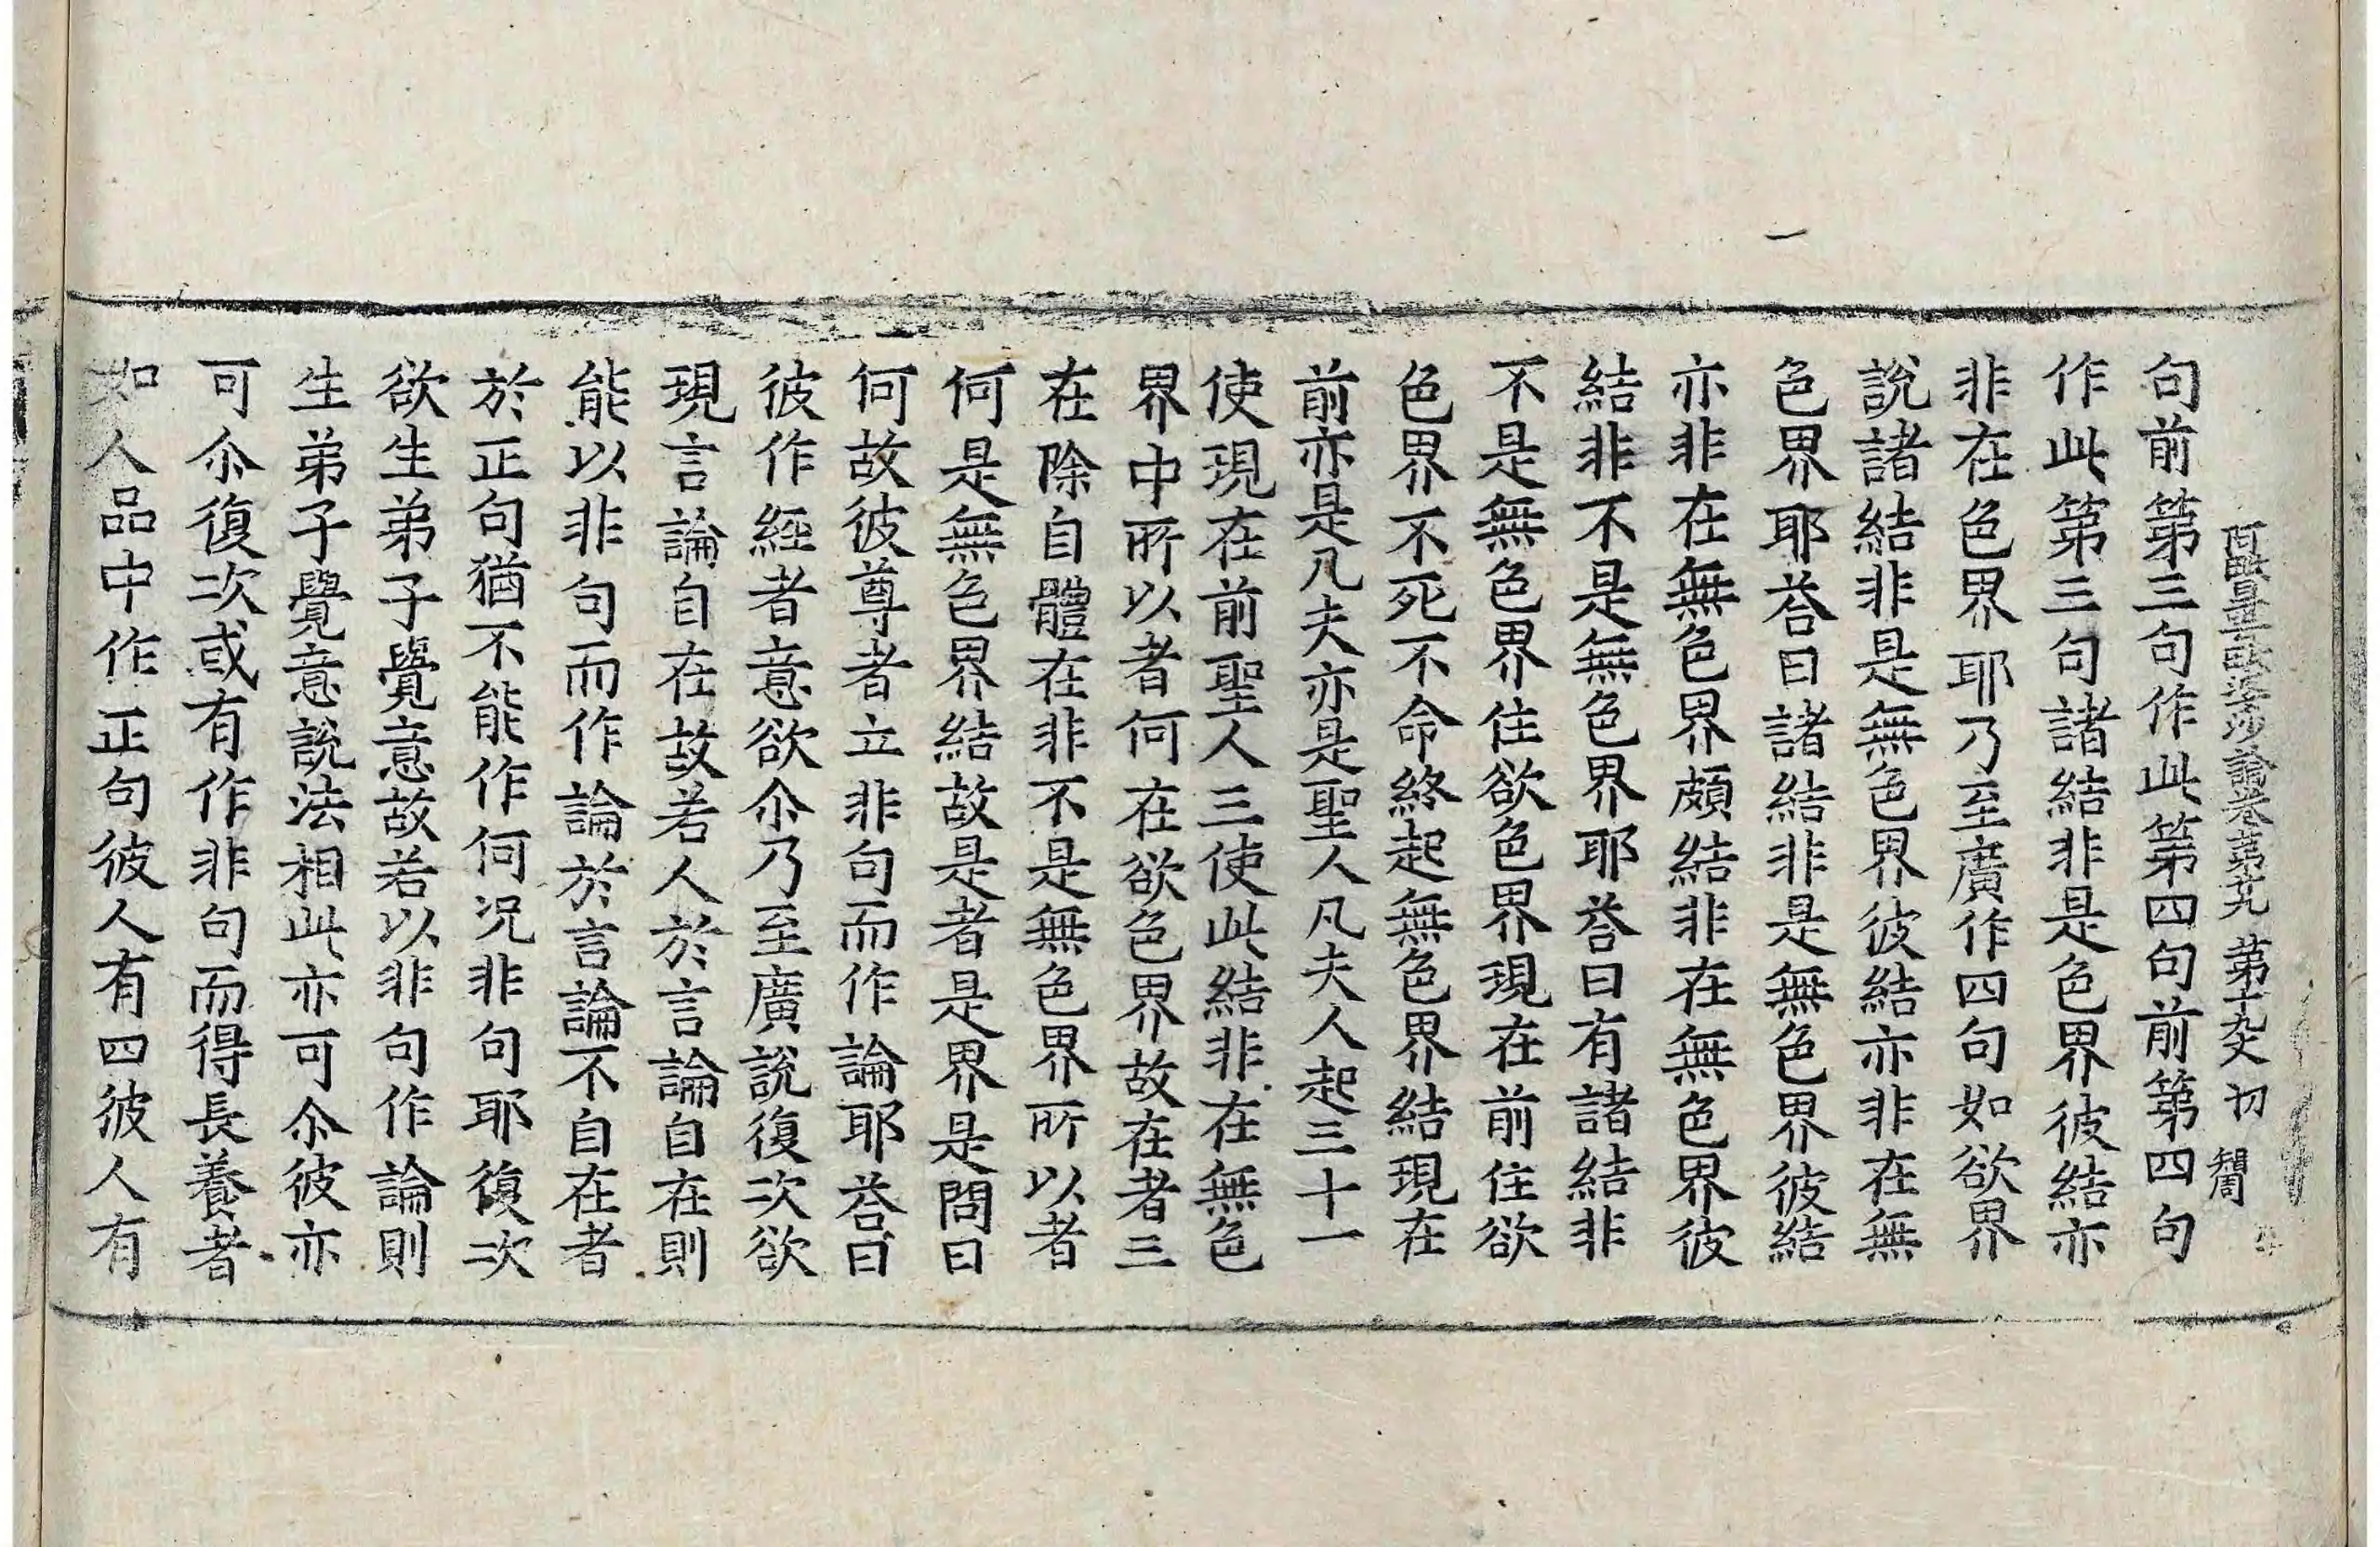 阿毗曇毗婆沙論卷第廿九 第十九丈 初 𮠕
句前第三句作此第四句前第四句
作此第三句諸結非是色界彼結亦
非在色界耶乃至廣作四句如欲界
說諸結非是無色界彼結亦非在無
色界耶荅曰諸結非是無色界彼結
亦非在無色界頗結非在無色界彼
結非不是無色界耶荅曰有諸結非
不是無色界住欲色界現在前住欲
色界不死不命終起無色界結現在
前亦是凡夫亦是聖人凡夫人起三十一
使現在前聖人三使此結非在無色
界中所以者何在欲色界故在者三
在除自體在非不是無色界所以者
何是無色界結故是者是界是問曰
何故彼尊者立非句而作論耶荅曰
彼作經者意欲尒乃至廣說復次欲
現言論自在故若人於言論自在則
能以非句而作論於言論不自在者
於正句猶不能作何况非句耶復次
欲生弟子覺意故若以非句作論則
生弟子覺意說法相此亦可尒彼亦
可尒復次或有作非句而得長養者
如人品中作正句彼人有四彼人有
一